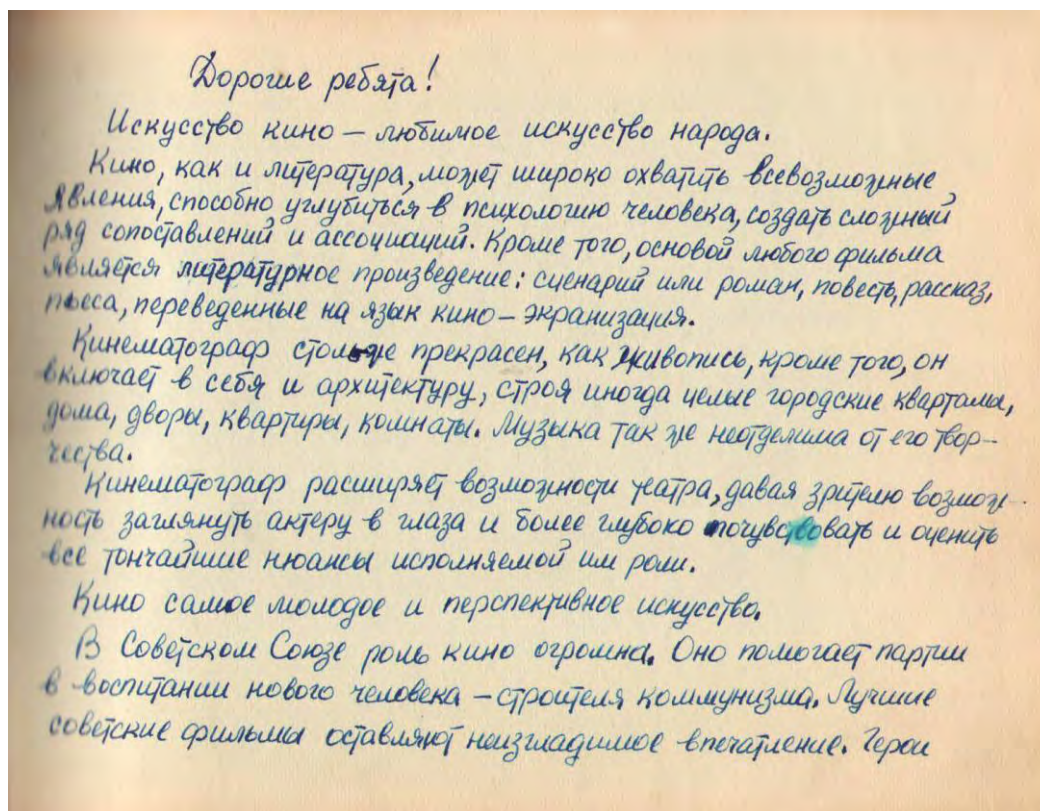 Дорогие ребята!
Искусство кино — любимое искусство народа.
Кино, как и литература, может широко охватить всевозможные
явления, способно углубиться в психологию человека, создать сложный
ряд сопоставлений и ассоциаций. Кроме того, основой любого фильма
является литературное произведение: сценарий или роман, повесть, рассказ,
пьеса, переведенные на язык кино — экранизация.
Кинематограф столь же прекрасен, как живопись, кроме того, он
включает в себя и архитектуру, строя иногда целые городские кварталы,
дома, дворы, квартиры, комнаты. Музыка так же неотделима от его твор-
чества.
Кинематограф расширяет возможности театра, давая зрителю возмож-
ность заглянуть актеру в глаза и более глубоко почувствовать и оценить
все тончайшие нюансы исполняемой им роли.
Кино самое молодое и перспективное искусство.
В Советском Союзе роль кино огромна. Оно помогает партии
в воспитании нового человека — строителя коммунизма. Лучшие
советские фильмы оставляют неизгладимое впечатление. Герои